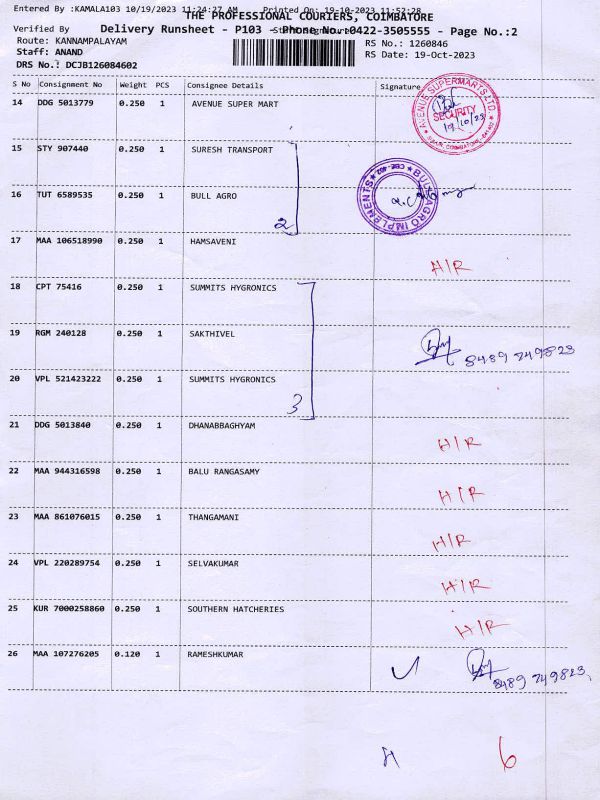 Entered By :KAMALA103 10/19/2023 11:24:27 AM Printed On: 19-10-2023 11:52:28
THE PROFESSIONAL COURIERS, COIMBATORE
Verified By Delivery Runsheet - P103 - Phone No.:0422-3505555 - Page No.:2
Route: KANNAMPALAYAM RS No.: 1260846
Staff: ANAND RS Date: 19-Oct-2023
DRS No.: DCJB126084602
S No Consignment No Weight PCS Consignee Details Signature
14 DDG 5013779 0.250 1 AVENUE SUPER MART
AVENUE SUPERMARTS LTD.
SECURITY
19/10/23
15 STY 907440 0.250 1 SURESH TRANSPORT
16 TUT 6589535 0.250 1 BULL AGRO
2
BULL AGRO IMPLEMENTS
17 MAA 106518990 0.250 1 HAMSAVENI H/R
18 CPT 75416 0.250 1 SUMMITS HYGRONICS
19 RGM 240128 0.250 1 SAKTHIVEL 8489 749823
20 VPL 521423222 0.250 1 SUMMITS HYGRONICS
3
21 DDG 5013840 0.250 1 DHANABBAGHYAM H/R
22 MAA 944316598 0.250 1 BALU RANGASAMY H/R
23 MAA 861076015 0.250 1 THANGAMANI H/R
24 VPL 220289754 0.250 1 SELVAKUMAR H/R
25 KUR 7000258860 0.250 1 SOUTHERN HATCHERIES H/R
26 MAA 107276205 0.120 1 RAMESHKUMAR 8489 749823
6